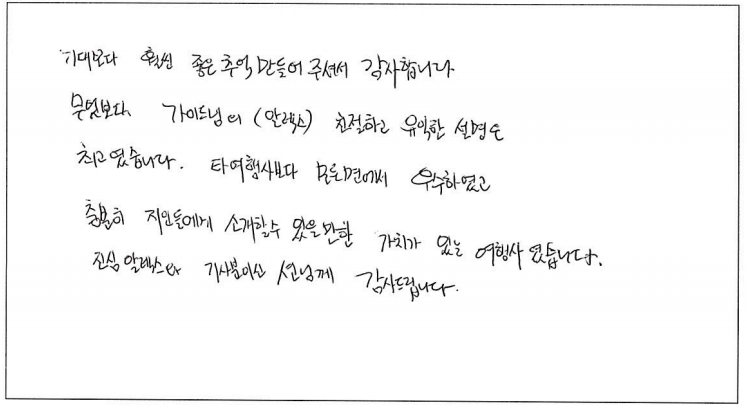 기대보다 훨씬 좋은 추억 만들어 주셔서 감사합니다
무엇보다 가이드님의 (알렉스) 친절하고 유익한 설명은
최고였습니다. 타여행사보다 모든면에서 우수하였고
충분히 지인들에게 소개할수 있을만한 가치가 있는 여행사였습니다.
진심 알렉스와 기사분이신 님께 감사드립니다.